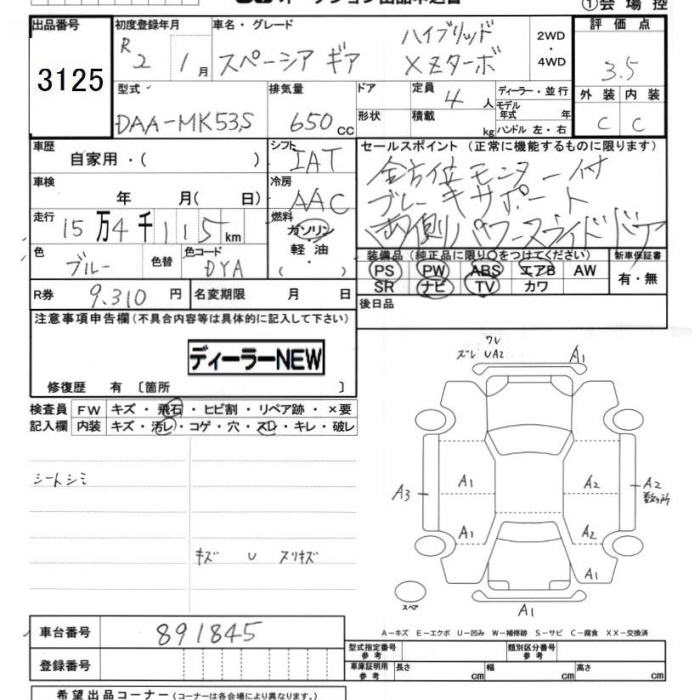 オークション出品申込書
①会場控
出品番号 3125
初度登録年月 R2 1月
車名・グレード スペーシア ギア ハイブリッド XZターボ
2WD・4WD
評価点 3.5
外装 内装
C C
型式 DAA-MK53S
排気量 650cc
ドア 形状
定員 4人
積載 kg
ディーラー・並行
モデル年式 年
ハンドル 左・右
車歴 自家用・( )
シフト IAT
セールスポイント (正常に機能するものに限ります)
全方位モニター付
ブレーキサポート
両側パワースライドドア
車検 年 月( 日)
冷房 AAC
走行 15万4千115km
燃料 ガソリン 軽油 ・( )
色 ブルー 色替
色コード DYA
装備品 (純正品に限り〇をつけてください)
新車保証書 有・無
PS PW ABS エアB AW
SR ナビ TV カワ
R券 9,310円
名変期限 月 日
後日品
注意事項申告欄(不具合内容等は具体的に記入して下さい)
ディーラーNEW
修復歴 有 〔箇所 〕
検査員記入欄
FW キズ・飛石・ヒビ割・リペア跡・×要
内装 キズ・汚レ・コゲ・穴・スレ・キレ・破レ
シートシミ
キズ U スリキズ
ワレ
ズレ UA2 A1
A1 A2
A3 A2 数ヶ所
A1 A2
A1
スペア
A1
A-キズ E-エクボ U-凹み W-補修跡 S-サビ C-腐食 XX-交換済
車台番号 891845
登録番号
型式指定番号 参考
類別区分番号 参考
車庫証明用 参考 長さ cm 幅 cm 高さ cm
希望出品コーナー (コーナーは各会場により異なります。)